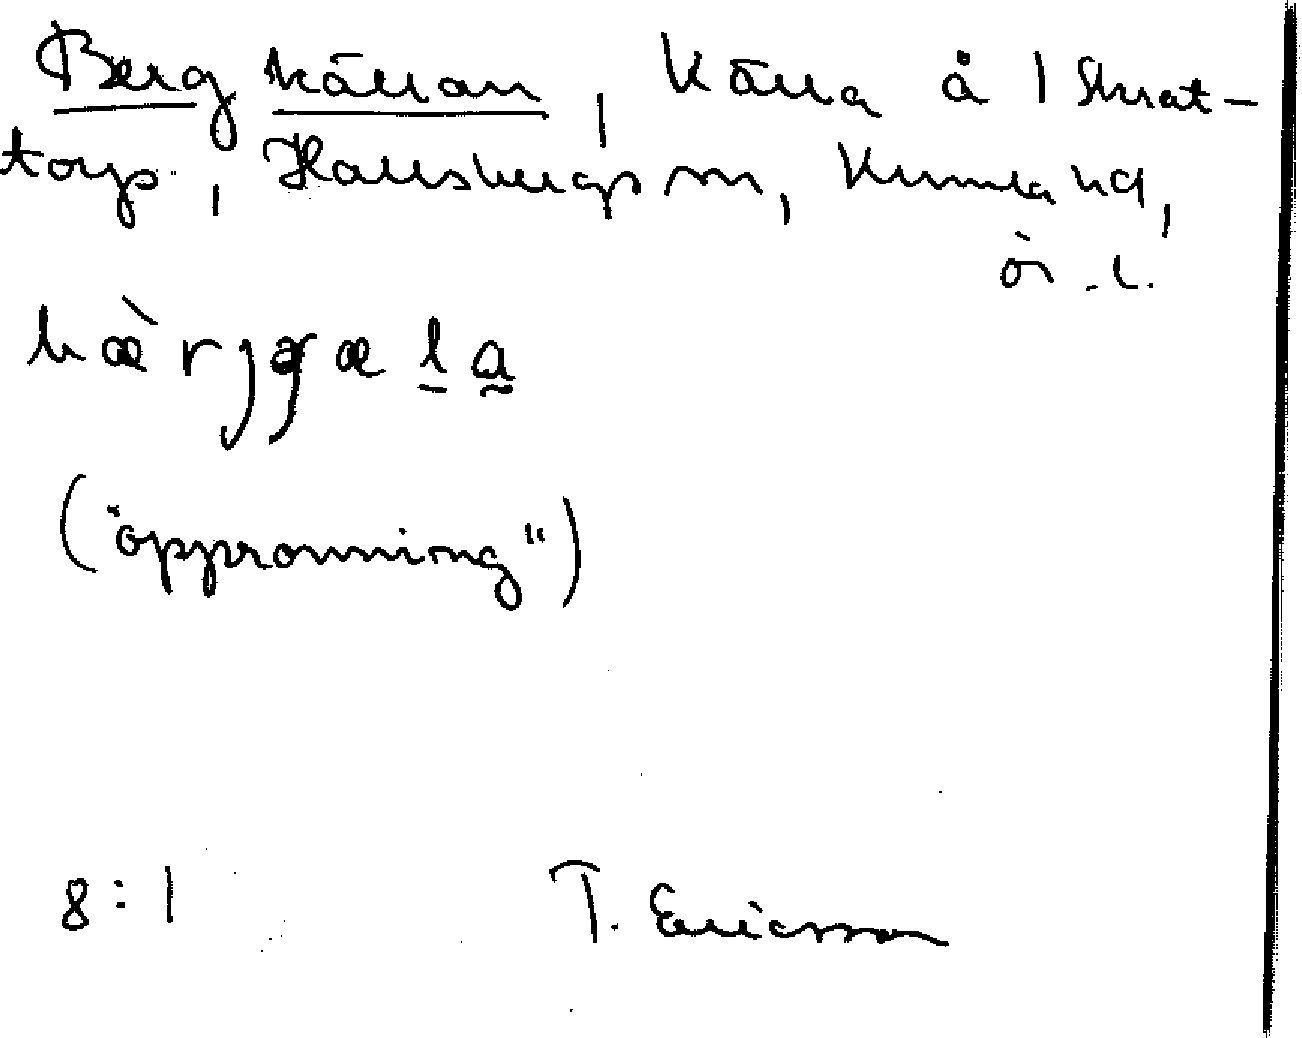 Bergkällan, Källa å 1 Skrat-
torp, Hallsbergs sn, Kumla hd,
Ör. l.
bæ̀rjɟæla
("öppromning")
8:1 T. Ericsson